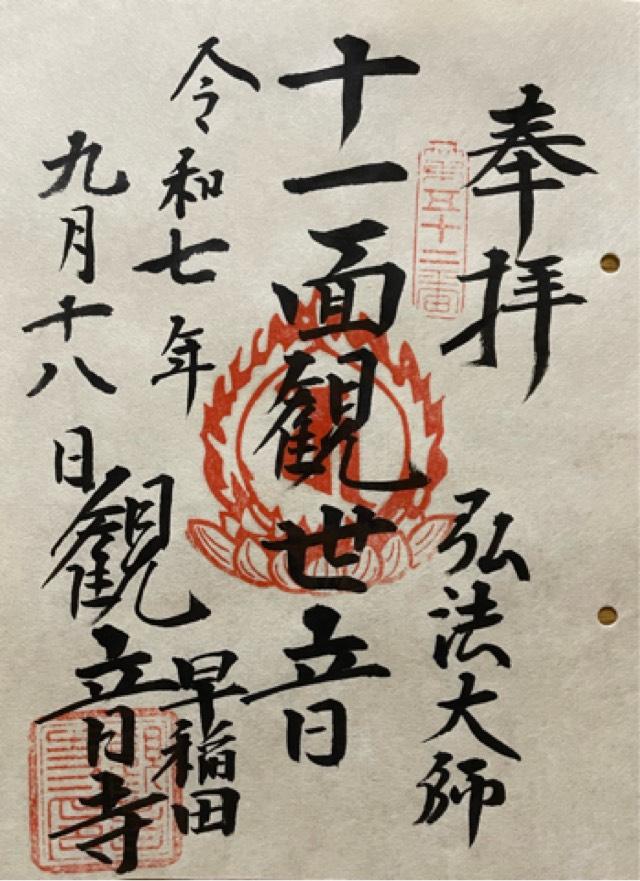 奉拝
第五十二番
弘法大師
十一面観世音
令和七年
九月十八日
早稲田
観音寺